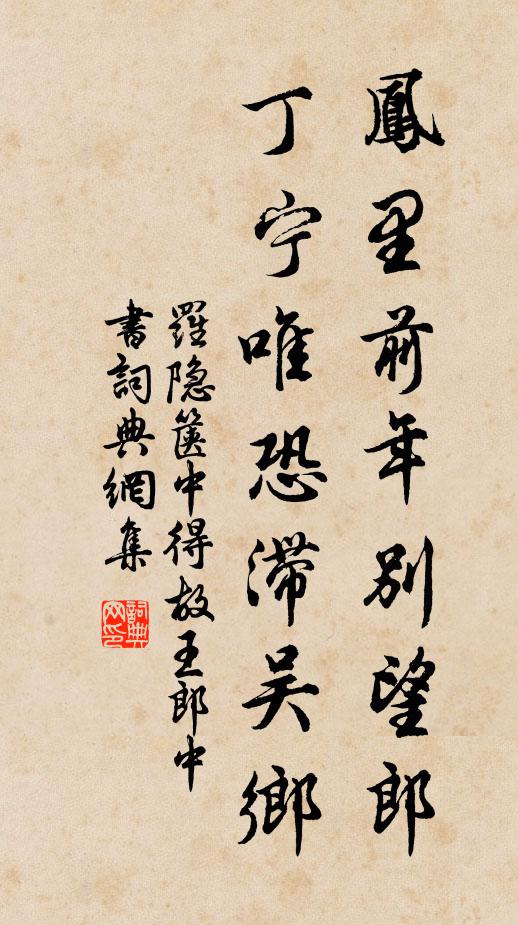 鳳里前年別望郎
丁宁唯恐滞吴鄉
羅隐篋中得故王郎中
書詞典網集
詞典
网印